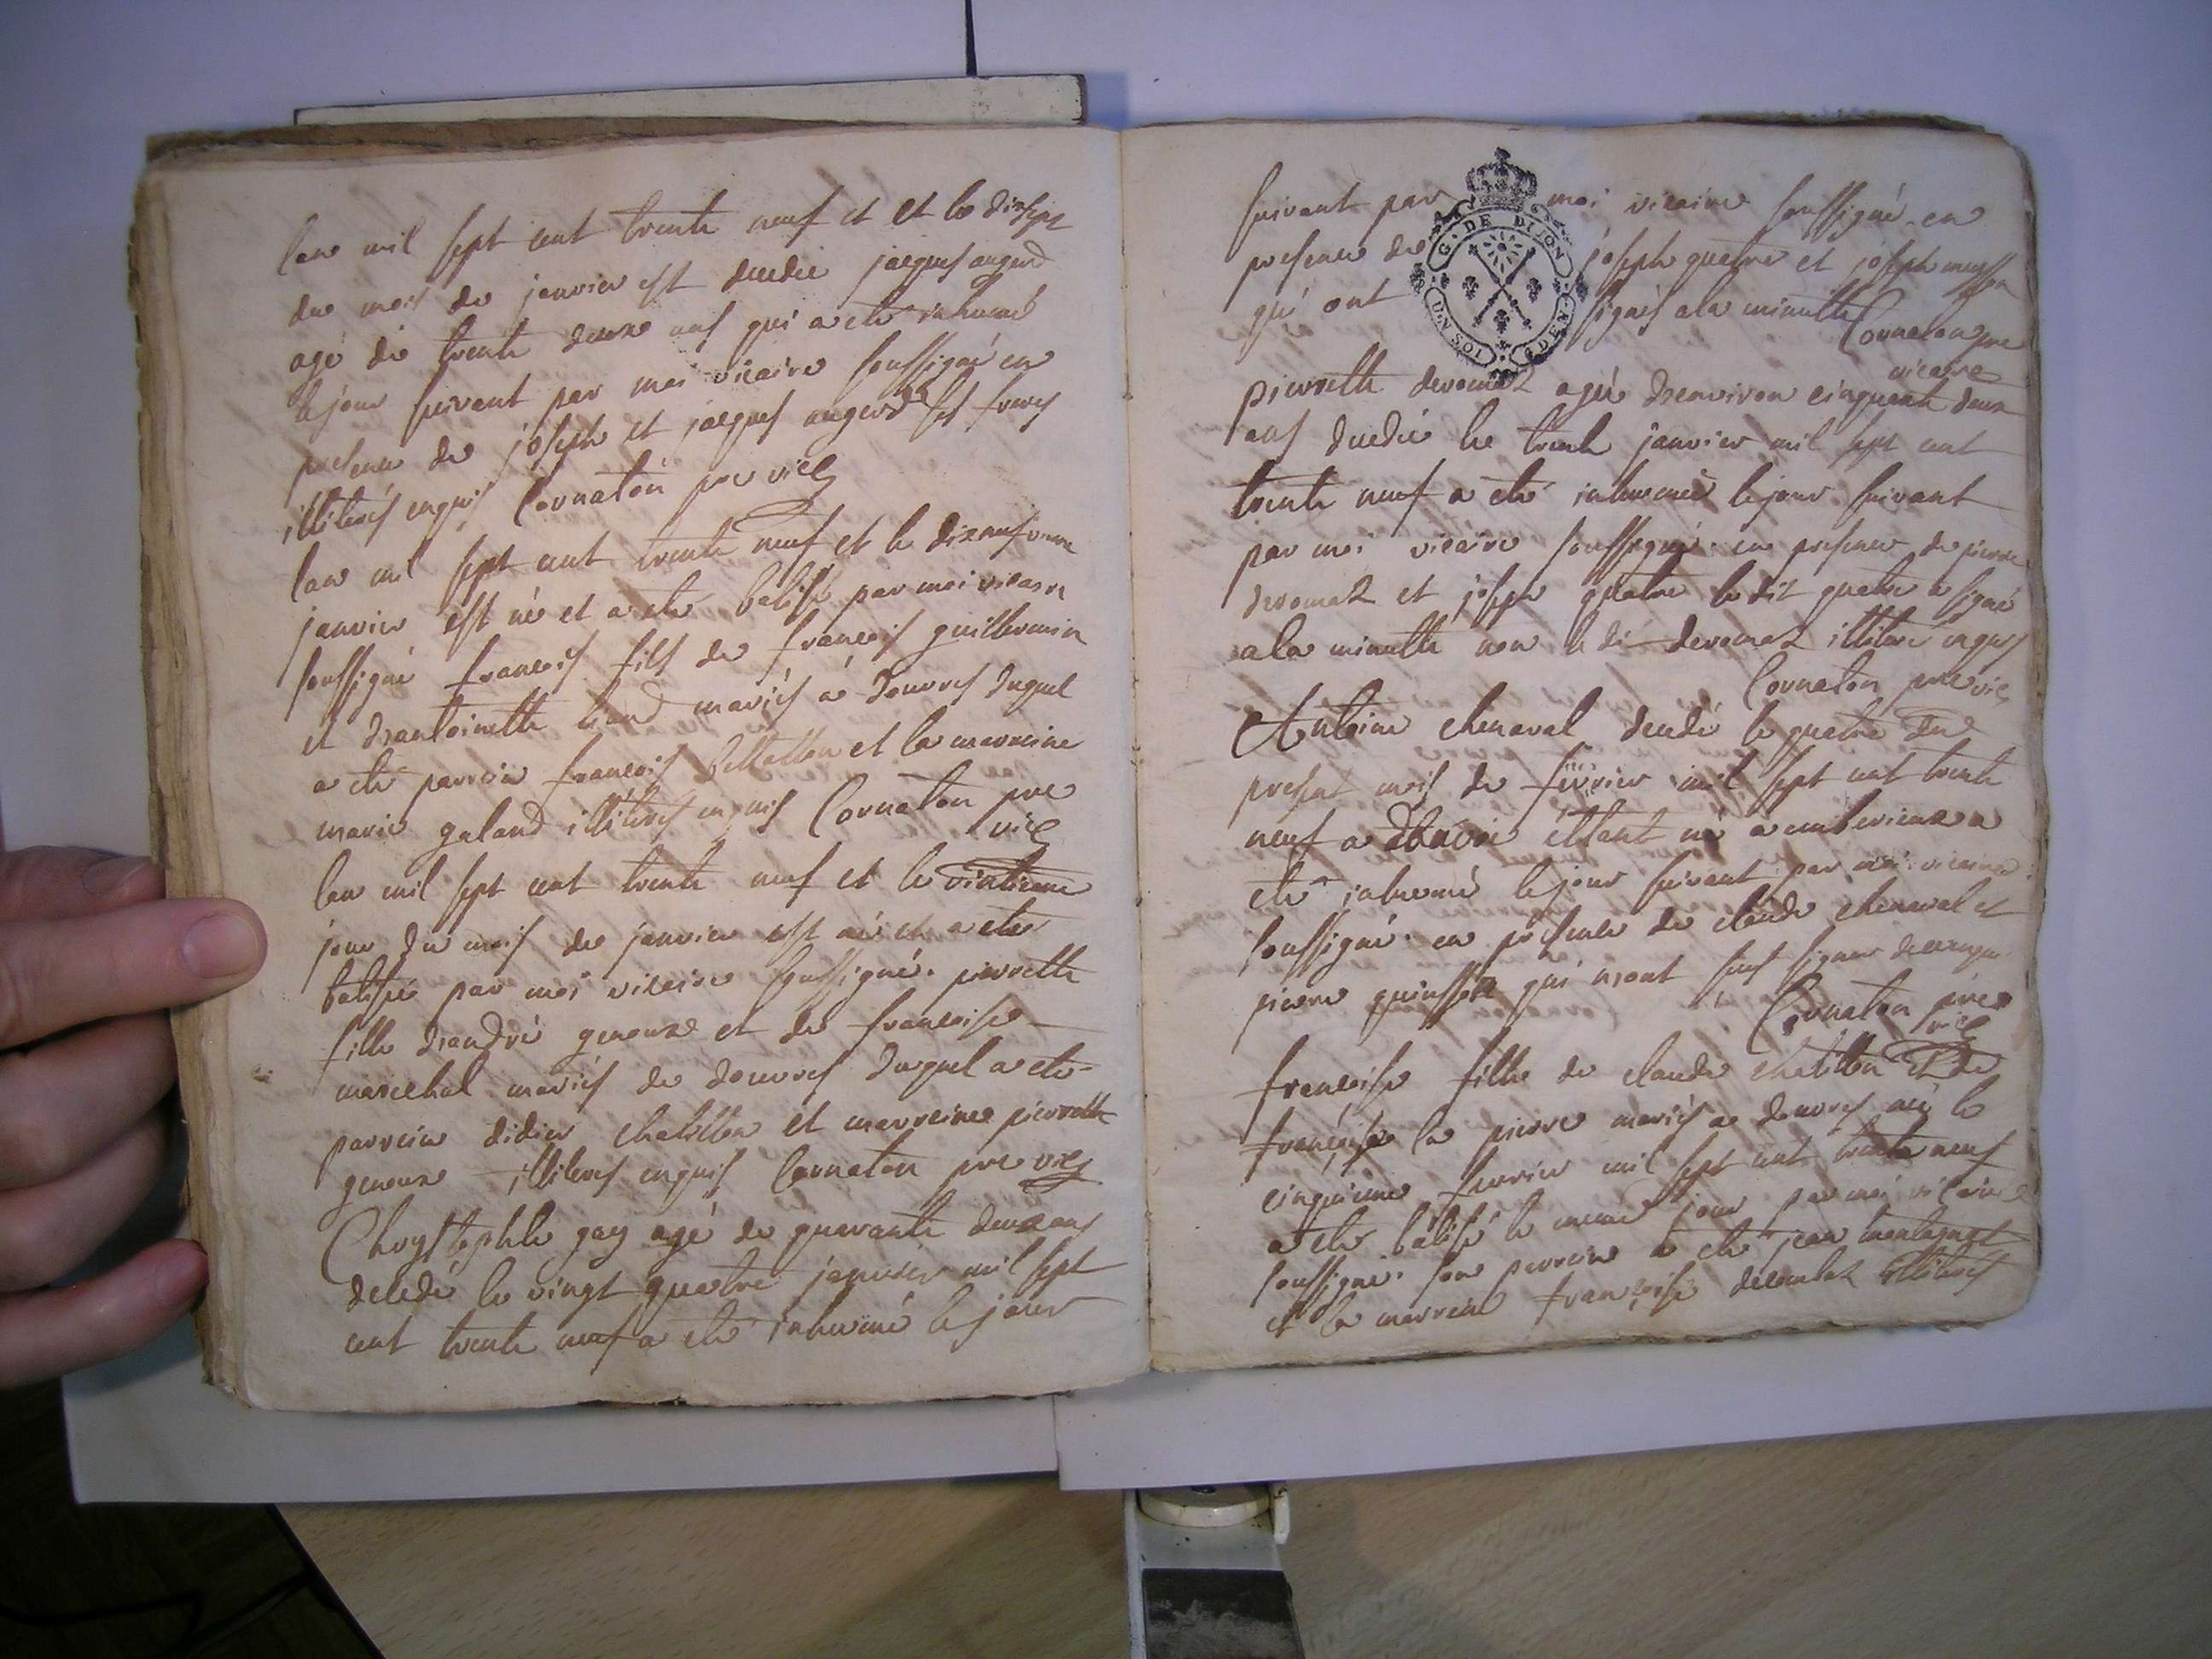 lan mil sept cent trente neuf et et le dixsept
du mois de janvier est decdée jacques augerd
agé de trente deux ans qui a eté inhumé
le jour suivant par moi vicaire soussigné en
presence de joseph et jacques augerd ses freres
illiterés enquis Cornaton pre vic
lan mil sept cent trente neuf et le dixneufvieme
janvier est né et a eté batisé par moi vicaire
soussigné francois fils de francois guillermin
et dantoinette mariés a Douvres duquel
a eté parrein francois et la marreine
marie galand illiterés enquis Cornaton pre
vic
lan mil sept cent trente neuf et le vintieme
jour du mois de janvier est née et a eté
batisée par moi vicaire soussigné. pierrette
fille dandré genoux et de francoise
marechal mariés de douvres duquel a eté
parrein didier chatillon et marreine pierrette
genoux illiterés enquis Cornaton pre vic
Chrystophle gay agé de quarante deux ans
decedé le vingt quatre janvier mil sept
cent trente neuf a eté inhumé le jour
suivant par moi vicaire soussigné en
presence de joseph quatre et joseph
qui ont signés a la minutte Cornaton pre
vicaire
G. DE DIJON
UN SOL
pierrette deromaz agée denviron cinquante deux
ans decedée le trente janvier mil sept cent
trente neuf a eté inhumée le jour suivant
par moi vicaire soussigné. en presence de pierre
deromaz et joseph quatre le dit quatre a signé
a la minutte non le di deromaz illiteré enquis
Cornaton pre vic
Antoine chenaval decedé le quatre du
present mois de fevrier mil sept cent trente
neuf a douvre etant né a ambericux a
eté inhumé le jour suivant par moi vicaire
soussigné. en presence de claude chenaval et
pierre quinson qui nont sus signer de ce enquis
Cornaton pre
vic
francoise fille de claude chatillon et de
francoise la pierre mariés a douvres née le
cinquieme fevrier mil sept cent trente neuf
a eté batisé le meme jour par moi vicaire
soussigné. son parrein a eté jean montagnat
et la marreine francoise decombaz illiterés